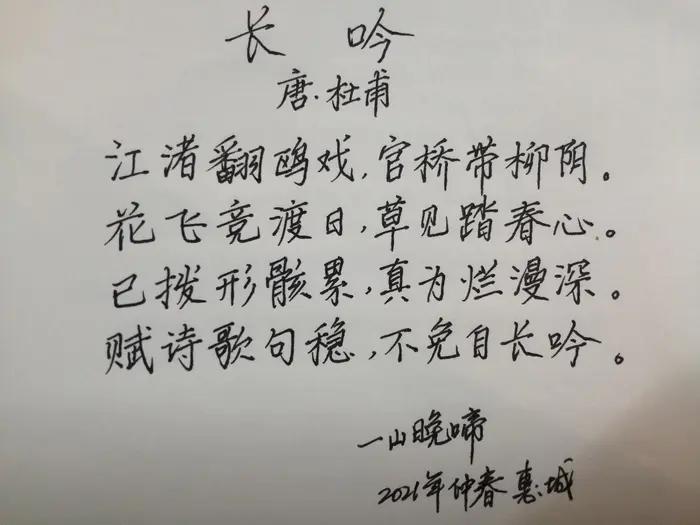 长 吟
唐·杜甫
江渚翻鸥戏,官桥带柳阴。
花飞竞渡日,草见踏春心。
已拨形骸累,真为烂漫深。
赋诗歌句稳,不免自长吟。
一山晚啼
2021年仲春惠城